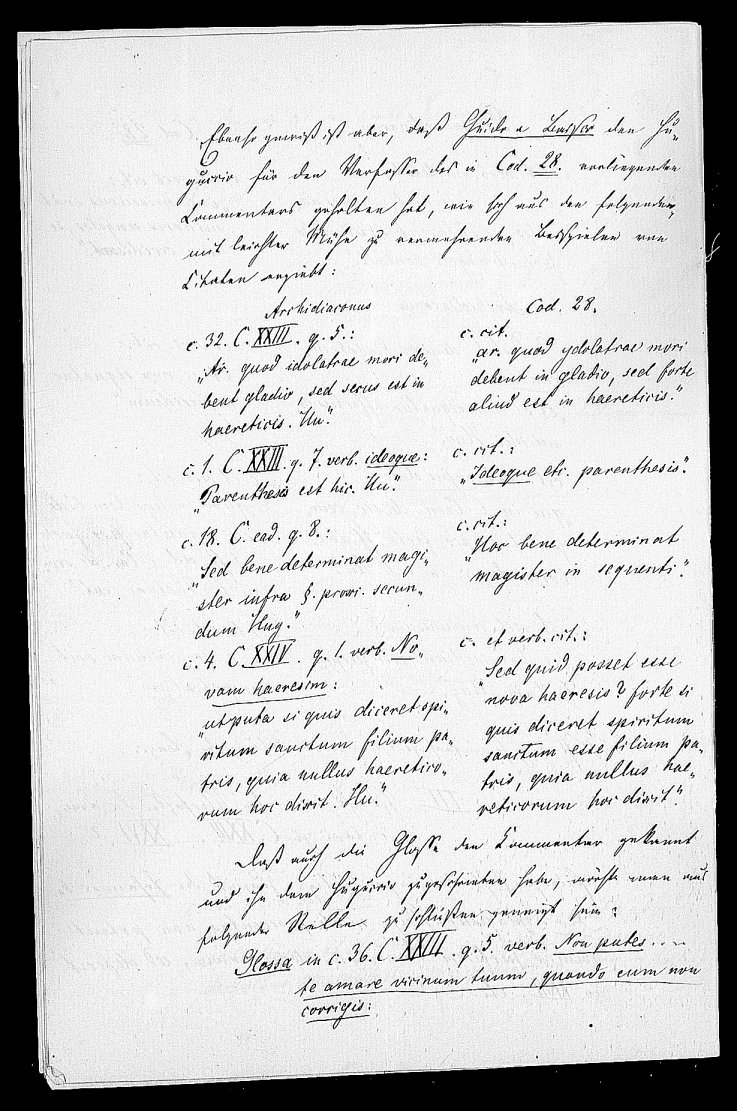 Ebenso gewiß ist aber, daß Guido a Baisio den Hu-
guccio für den Verfasser des in Cod. 28. vorliegenden
Commentars gehalten hat, wie sich aus den folgenden,
mit leichter Mühe zu vermehrenden Beispielen von
Citaten ergiebt:
Archidiaconus
c. 32. C. XXIII. q. 5.:
„Ar. quod idolatrae mori de-
bent gladio, sed secus est in
haereticis. Hu."
c. 1. C. XXIII. q. 7. verb. ideoque:
„Parenthesis est hic. Hu."
c. 18. C. ead. q. 8.:
„Sed bene determinat magi-
ster infra §. proxi. secun-
dum Hug."
c. 4. C. XXIV. q. 1. verb. No-
vam haeresim:
„utputa si quis diceret spi-
ritum sanctum filium pa-
tris, quia nullus haeretico-
rum hoc dixit. Hu."
Cod. 28.
c. cit.
„ar. quod ydolatrae mori
debent in gladio, sed forte
aliud est in haereticis."
c. cit.:
„Ideoque etc. parenthesis."
c. cit.:
„Hoc bene determinat
magister in sequenti."
c. et verb. cit.:
„Sed quid posset esse
nova haeresis? forte si
quis diceret spiritum
sanctum esse filium pa-
tris, quia nullus hae-
reticorum hoc dixit".
Daß auch die Glosse den Commentar gekannt
und ihn dem Huguccio zugeschrieben habe, möchte man aus
folgender Stelle zu schließen geneigt sein:
Glossa in c. 36. C. XXIII. q. 5 verb. Non putes....
te amare vicinum tuum, quando eum non
corrigis: